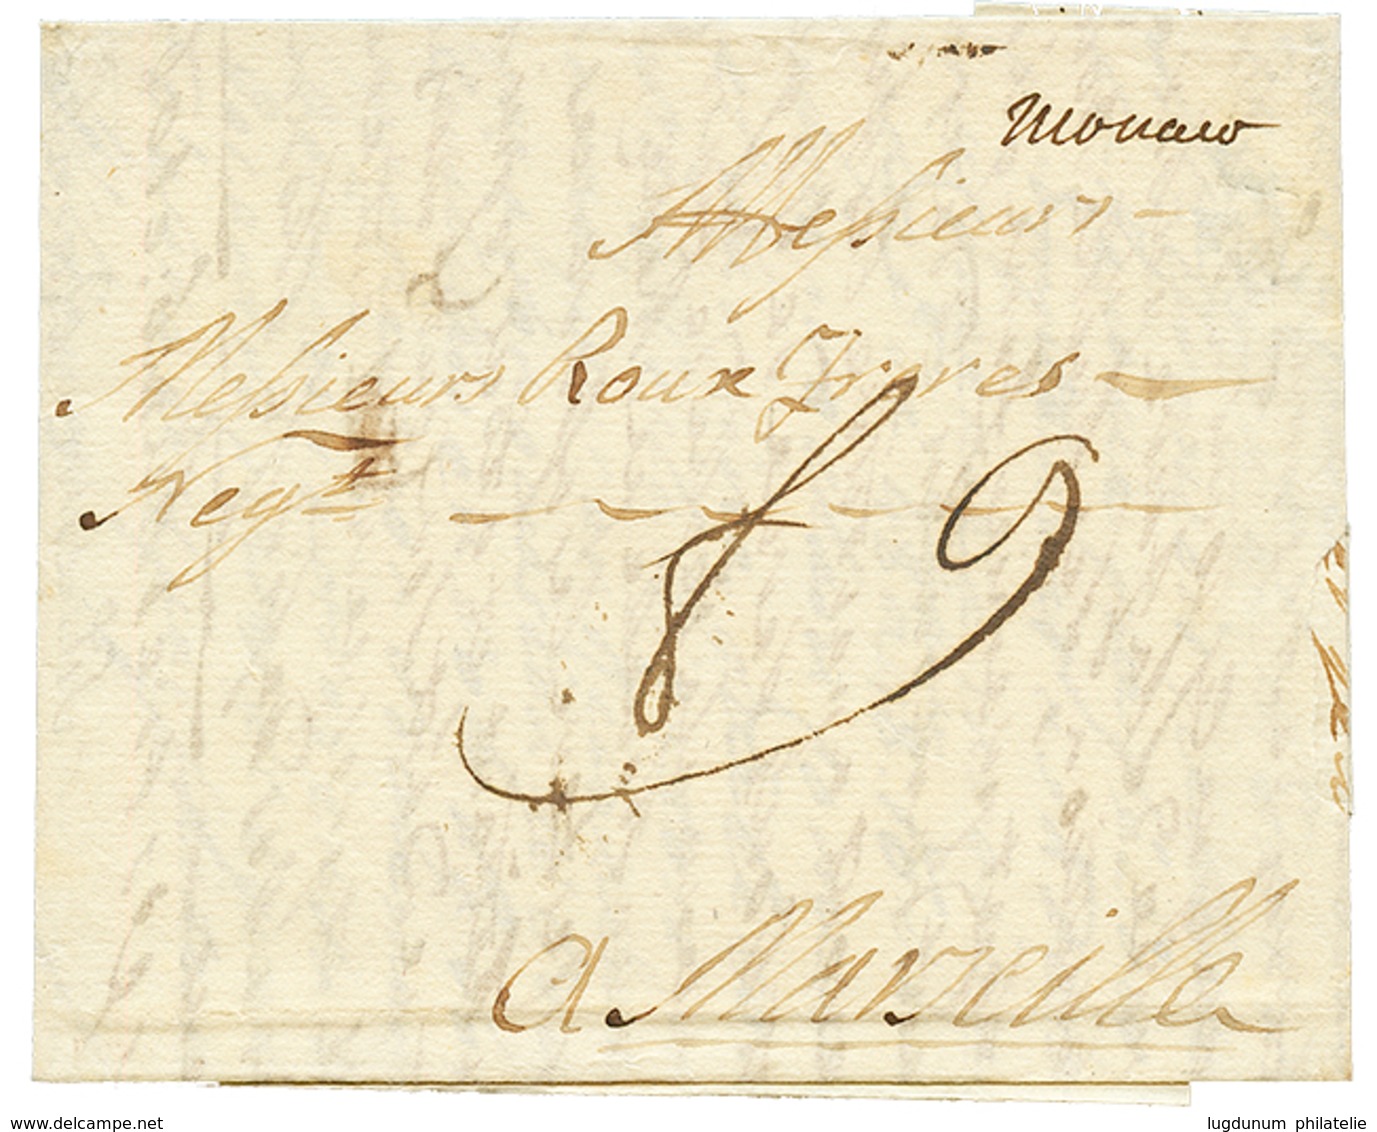 Monaco
Messieurs
Messieurs Roux Freres
Negt
8 9
a Marseille
www.delcampe.net
lugdunum philatelie